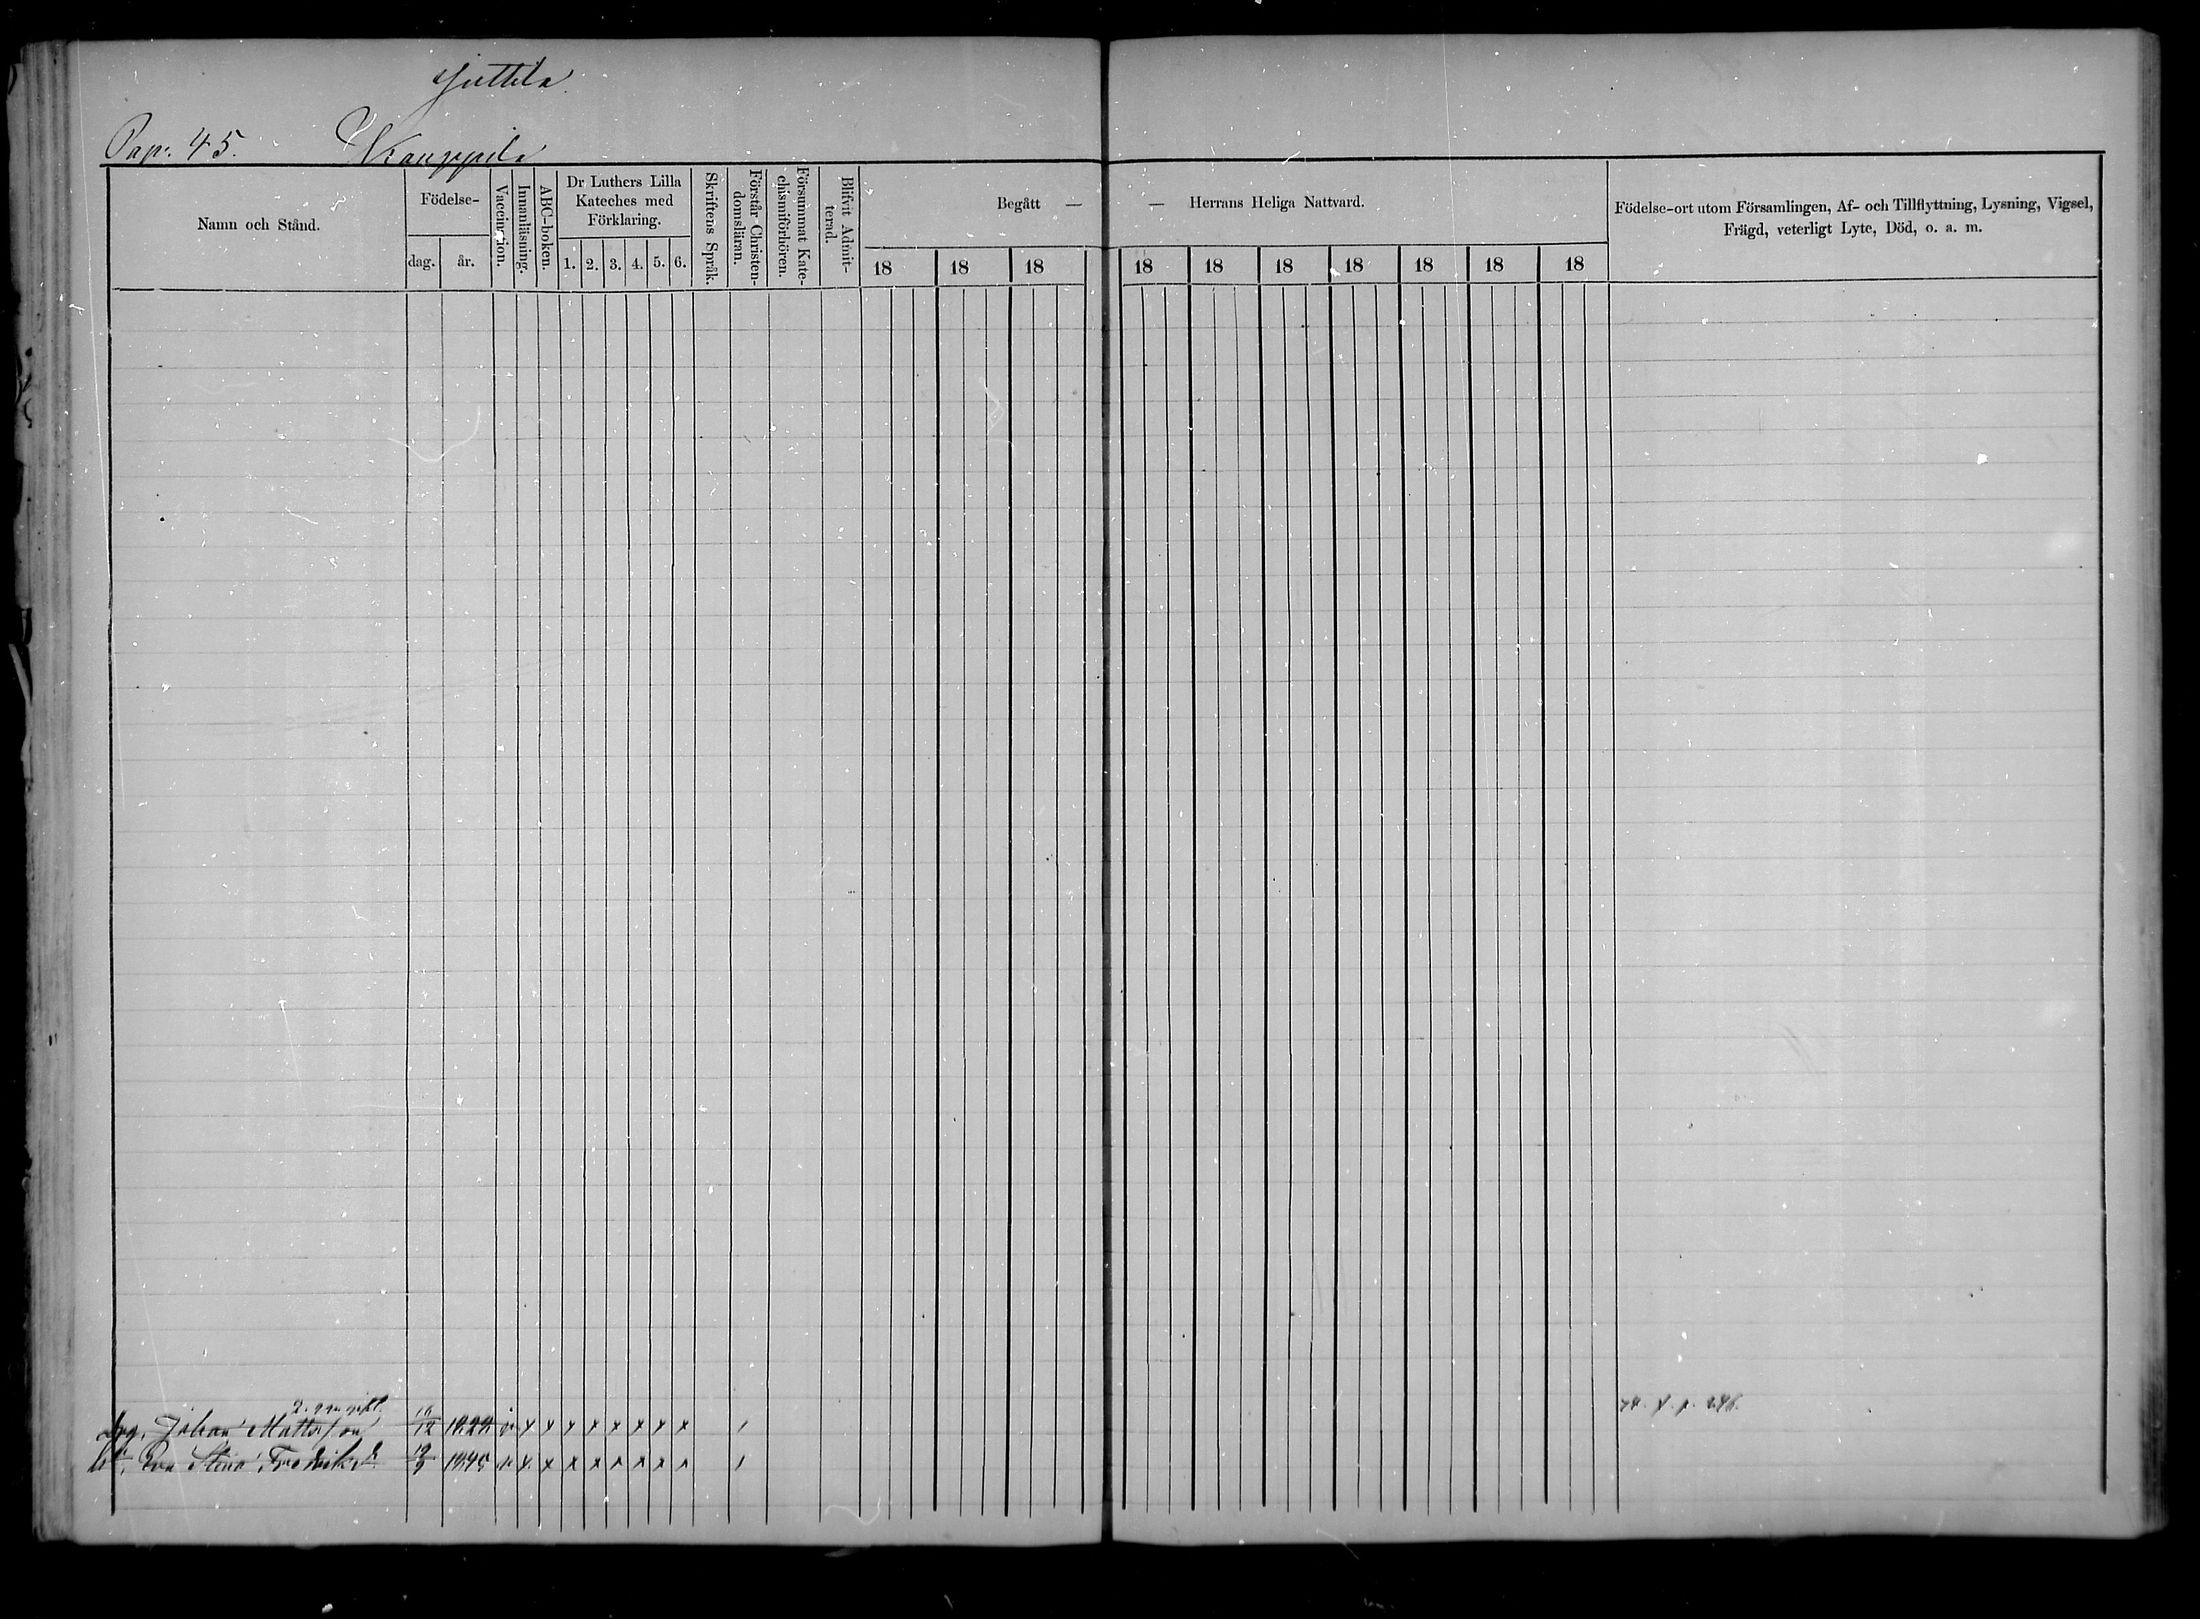 Juttila
Pag. 45. Kauppila
Namn och Stånd.
Födelse-
dag. år.
Vaccination.
Innanläsning.
ABC-boken.
Dr Luthers Lilla
Kateches med
Förklaring.
1. 2. 3. 4. 5. 6.
Skriftens Språk.
Förstår Christen-
domsläran.
Försummat Kate-
chismiförhören.
Blifvit Admit-
terad.
Begått — — Herrans Heliga Nattvard.
18 18 18 18 18 18 18 18 18 18
Födelse-ort utom Församlingen, Af- och Tillflyttning, Lysning, Vigsel,
Frägd, veterligt Lyte, Död, o. a. m.
2. g. gift.
Johan Mattsson 1822 v x x x x x x x x /
H. Eva Stina Fredriksd. 19/9 1845 v x x x x x x x x /